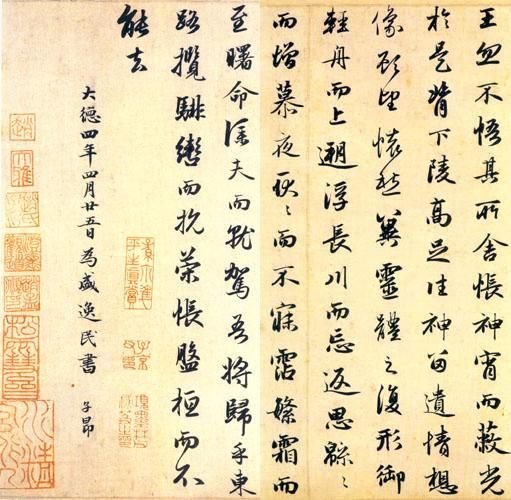 王忽不悟其所舍悵神宵而蔽光
於是背下陵高足往神留遺情想
像顧望懷愁冀靈體之復形御
輕舟而上遡浮長川而忘返思緜〻
而增慕夜耿〻而不寐霑繁霜而
至曙命僕夫而就駕吾將歸乎東
路攬騑轡而抗策悵盤桓而不
能去
大德四年四月廿五日為盛逸民書 子昂